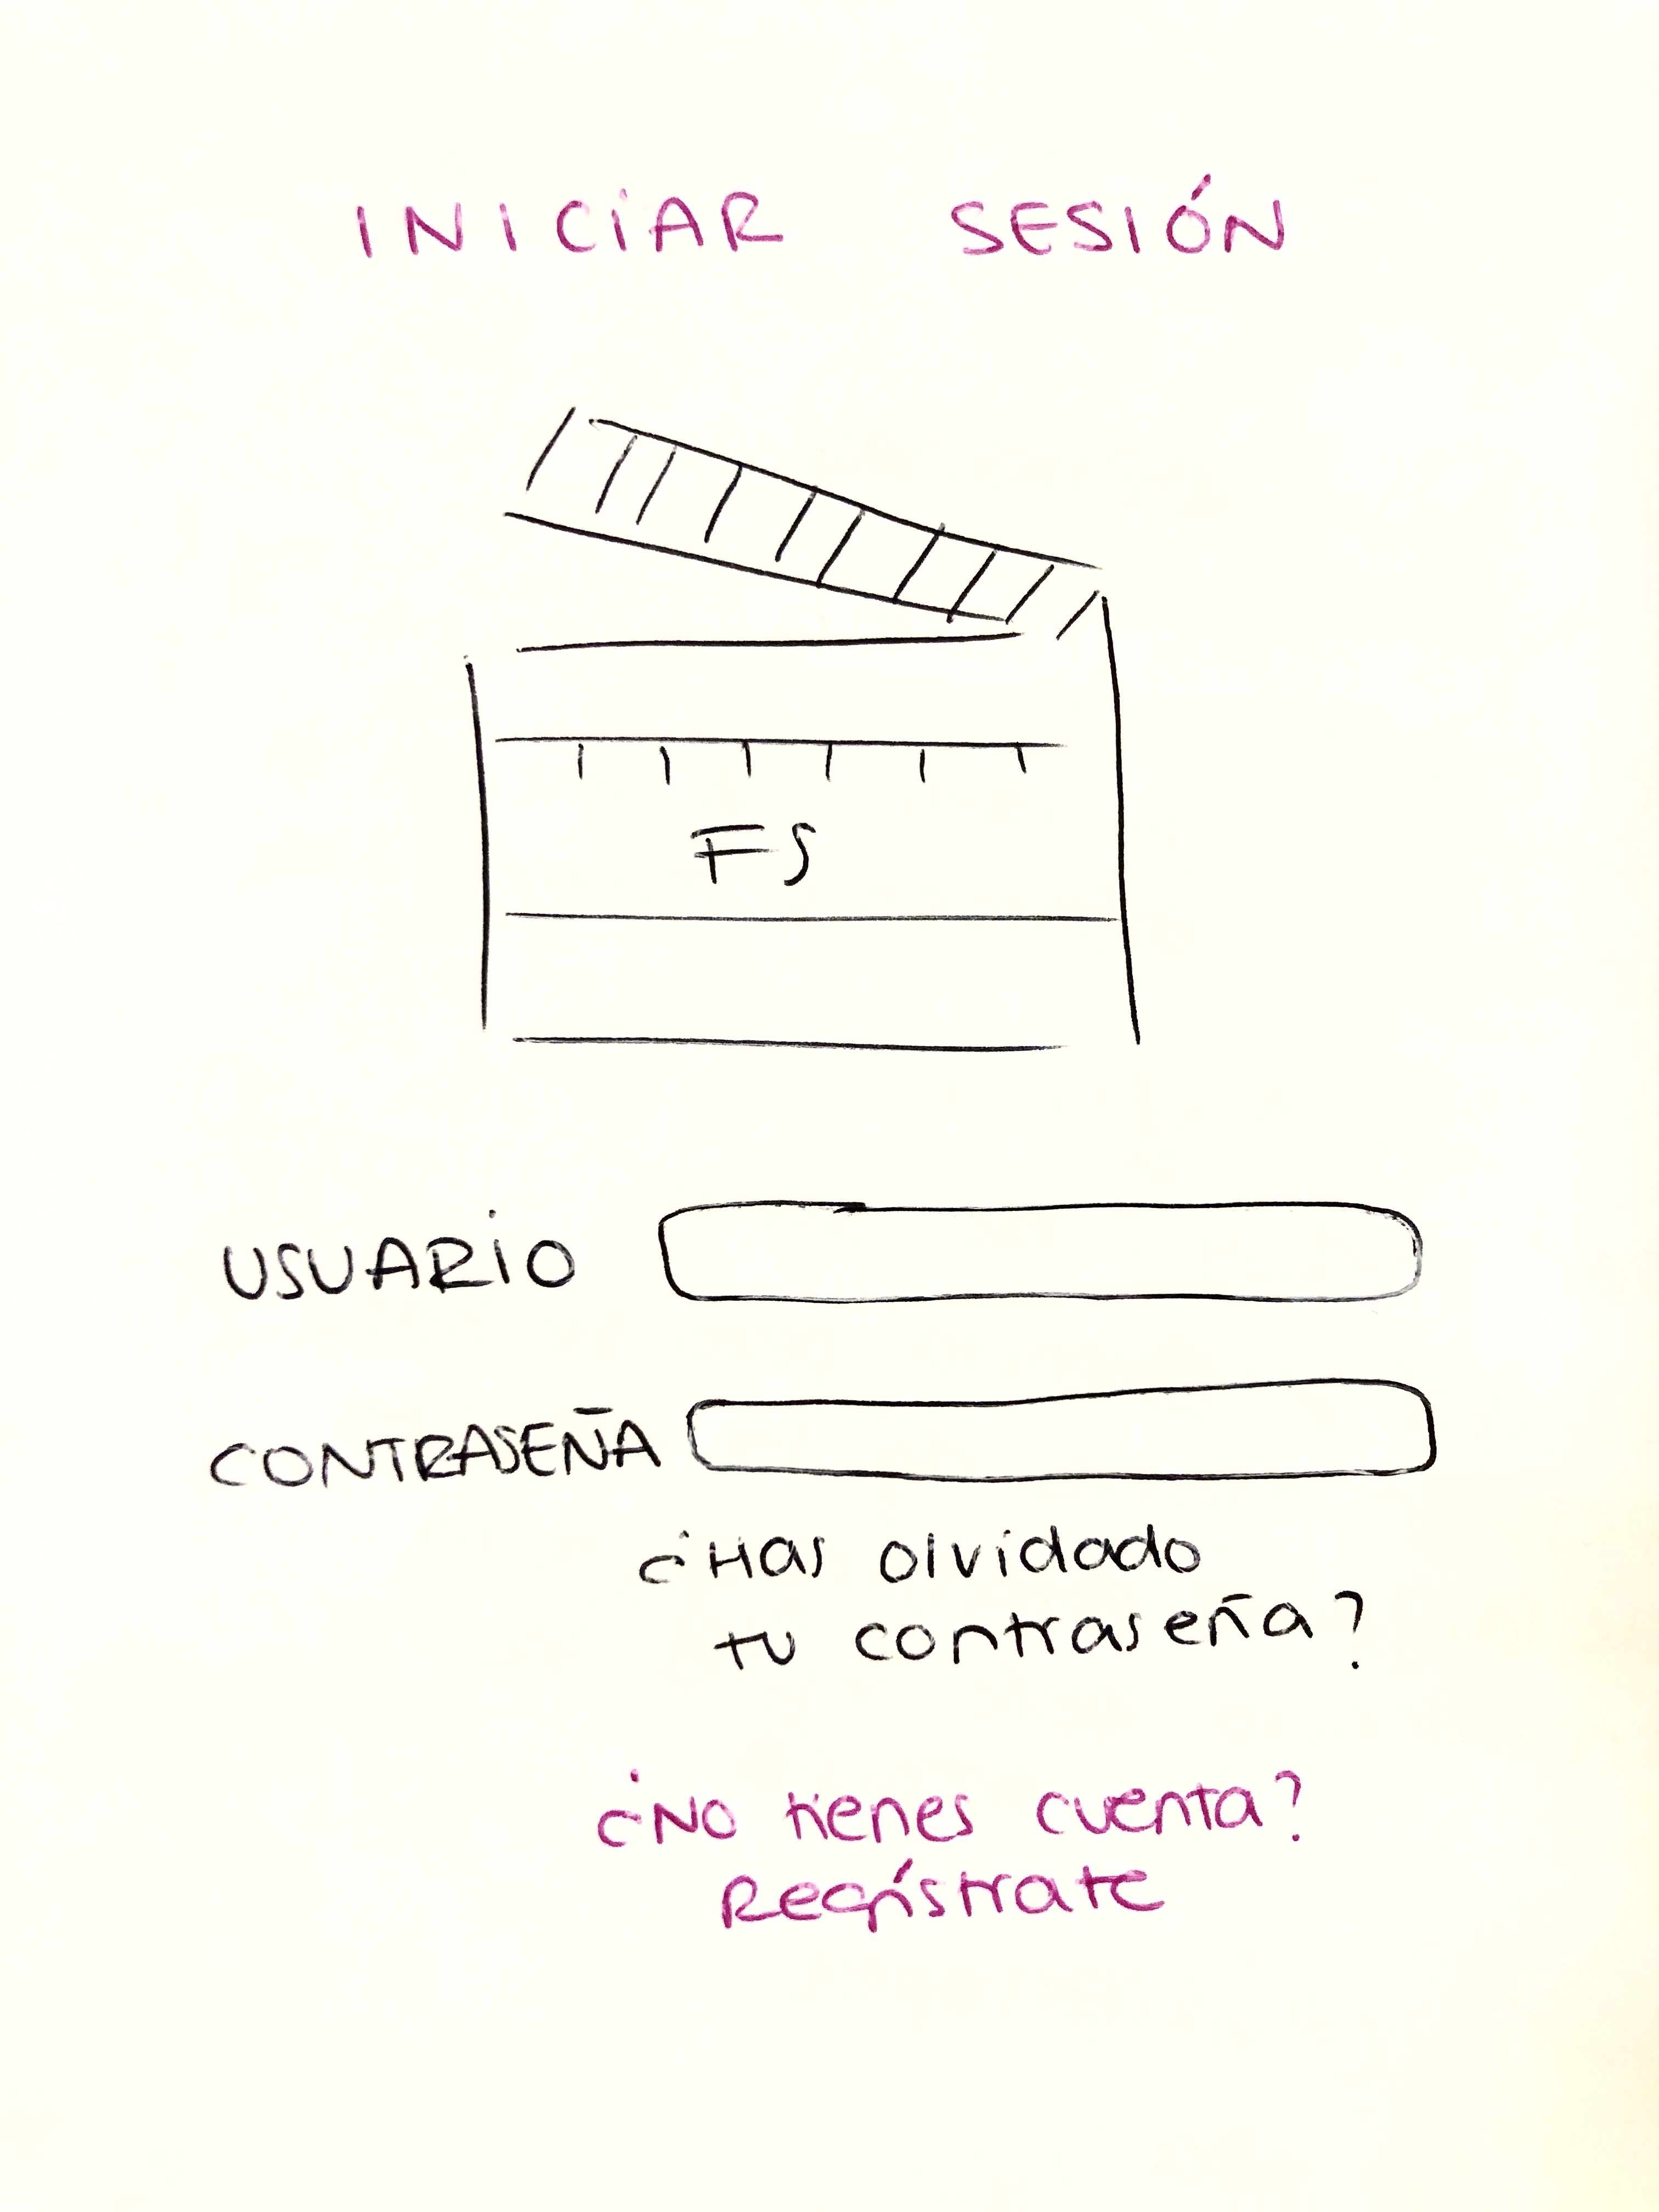 INICIAR SESIÓN
FS
USUARIO
CONTRASEÑA
¿Has olvidado
tu contraseña?
¿No tienes cuenta?
Regístrate